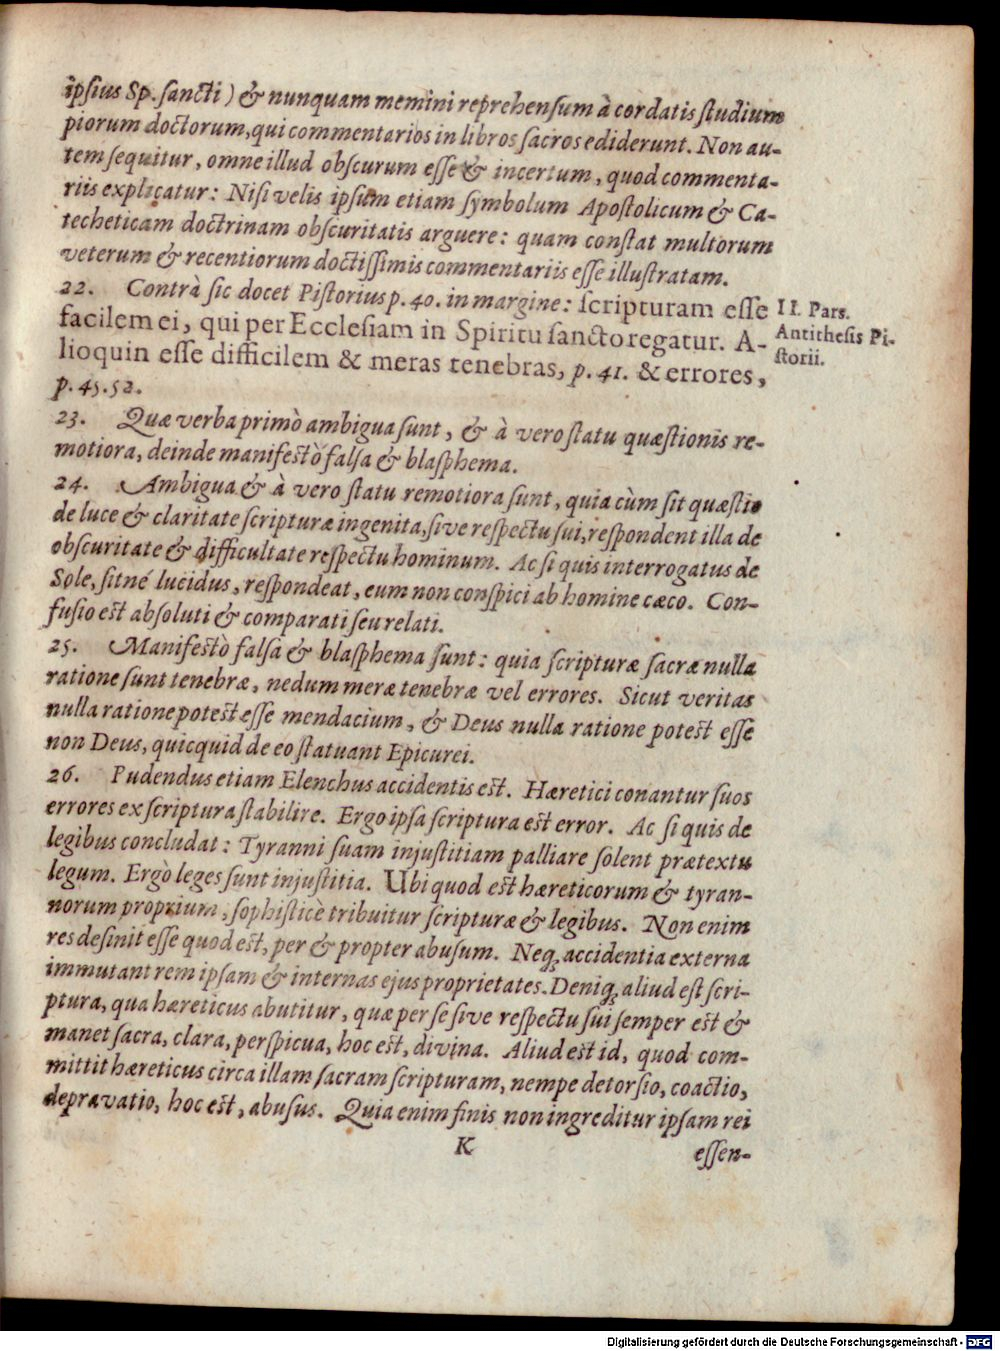 ipſius Sp. ſancti) & nunquam memini reprehenſum à cordatis ſtudium
piorum doctorum, qui commentarios in libros ſacros ediderunt. Non au-
tem ſequitur, omne illud obſcurum eſſe & incertum, quod commenta-
riis explicatur: Niſi velis ipſum etiam ſymbolum Apoſtolicum & Ca-
techeticam doctrinam obſcuritatis arguere: quam conſtat multorum
veterum & recentiorum doctiſſimis commentariis eſſe illuſtratam.
22. Contrà ſic docet Piſtorius p. 40. in margine: ſcripturam eſſe
facilem ei, qui per Eccleſiam in Spiritu ſancto regatur. A-
lioquin eſſe difficilem & meras tenebras, p. 41. & errores,
p. 45. 52.
II. Pars.
Antitheſis Pi-
ſtorii.
23. Quæ verba primò ambigua ſunt, & à vero ſtatu quæſtionis re-
motiora, deinde manifeſtò falſa & blaſphema.
24. Ambigua & à vero ſtatu remotiora ſunt, quia cùm ſit quæſtio
de luce & claritate ſcripturæ ingenita, ſive reſpectu ſui, reſpondent illa de
obſcuritate & difficultate reſpectu hominum. Ac ſi quis interrogatus de
Sole, ſitné lucidus, reſpondeat, eum non conſpici ab homine cæco. Con-
fuſio eſt abſoluti & comparati ſeu relati.
25. Manifeſtò falſa & blaſphema ſunt: quia ſcripturæ ſacræ nulla
ratione ſunt tenebræ, nedum meræ tenebræ vel errores. Sicut veritas
nulla ratione poteſt eſſe mendacium, & Deus nulla ratione poteſt eſſe
non Deus, quicquid de eo ſtatuant Epicurei.
26. Pudendus etiam Elenchus accidentis eſt. Hæretici conantur ſuos
errores ex ſcriptura ſtabilire. Ergo ipſa ſcriptura eſt error. Ac ſi quis de
legibus concludat: Tyranni ſuam injuſtitiam palliare ſolent prætextu
legum. Ergò leges ſunt injuſtitia. Ubi quod eſt hæreticorum & tyran-
norum proprium, ſophiſticè tribuitur ſcripturæ & legibus. Non enim
res deſinit eſſe quod eſt, per & propter abuſum. Neq; accidentia externa
immutant rem ipſam & internas ejus proprietates. Deniq; aliud eſt ſcri-
ptura, qua hæreticus abutitur, quæ per ſe ſive reſpectu ſui ſemper eſt &
manet ſacra, clara, perſpicua, hoc eſt, divina. Aliud eſt id, quod com-
mittit hæreticus circa illam ſacram ſcripturam, nempe detorſio, coactio,
depravatio, hoc eſt, abuſus. Quia enim finis non ingreditur ipſam rei
K
eſſen-
Digitalisierung gefördert durch die Deutsche Forschungsgemeinschaft - DFG